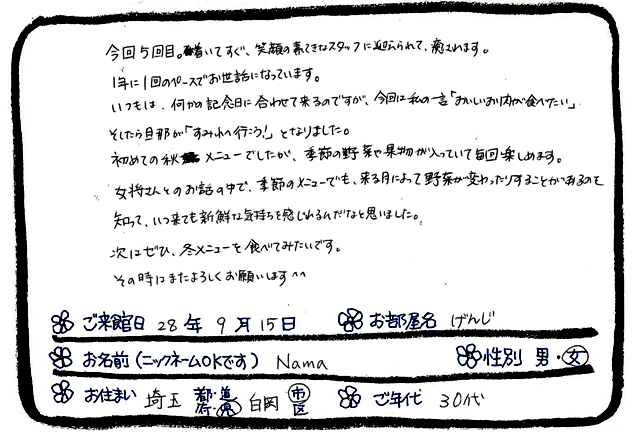 今回5回目。着いてすぐ、笑顔の素てきなスタッフに迎えられて、癒されます。
1年に1回のペースでお世話になっています。
いつもは、何かの記念日に合わせて来るのですが、今回は私の一言「おいしいお肉が食べたい」
そしたら旦那が「すみれへ行こう!」となりました。
初めての秋メニューでしたが、季節の野菜や果物が入っていて毎回楽しめます。
女将さんとのお話の中で、季節のメニューでも、来る月によって野菜が変わったりすることがあるのを
知って、いつ来ても新鮮な気持ちを感じれるんだなと思いました。
次はぜひ、冬メニューを食べてみたいです。
その時にまたよろしくお願いします^^
ご来館日 28年 9月15日 お部屋名 げんじ
お名前(ニックネームOKです) Nama 性別 男・女
お住まい 埼玉 都・道・府・県 白岡 市・区 ご年代 30代